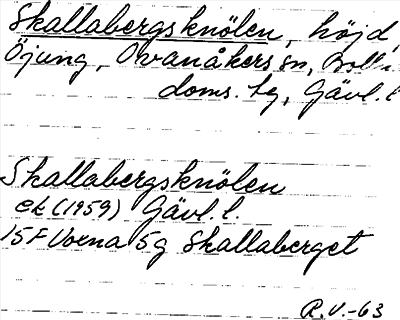 Skallabergsknölen, höjd,
Öjung, Ovanåkers sn, Boll-
doms. tg, Gävl. l.
Skallabergsknölen
ek (1959) Gävl. l.
15F Voxna 5g Skallaberget
R.V.-63